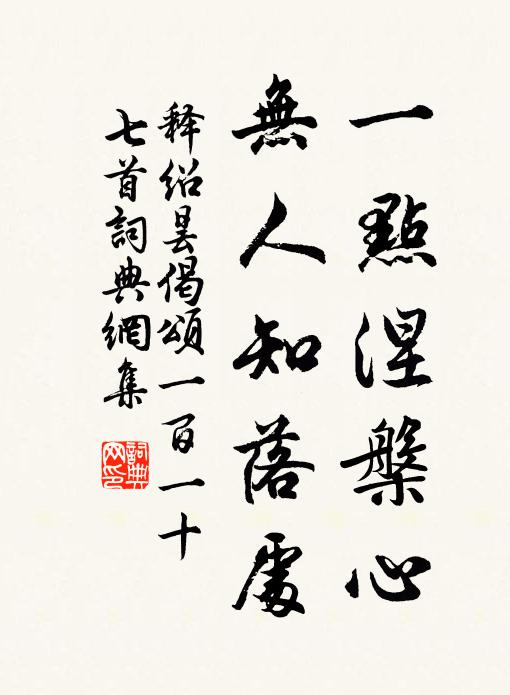 一點涅槃心
無人知落處
釋紹曇偈頌一百一十
七首詞典網集
詞典
网印